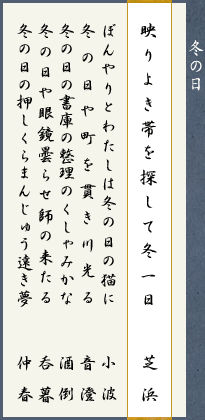 冬の日
映りよき帯を探して冬一日　芝浜
ぼんやりとわたしは冬の日の猫に　小波
冬の日や町を貫き川光る　音澄
冬の日の書庫の整理のくしゃみかな　酒倒
冬の日や眼鏡曇らせ師の来たる　呑暮
冬の日の押しくらまんじゅう遠き夢　仲春